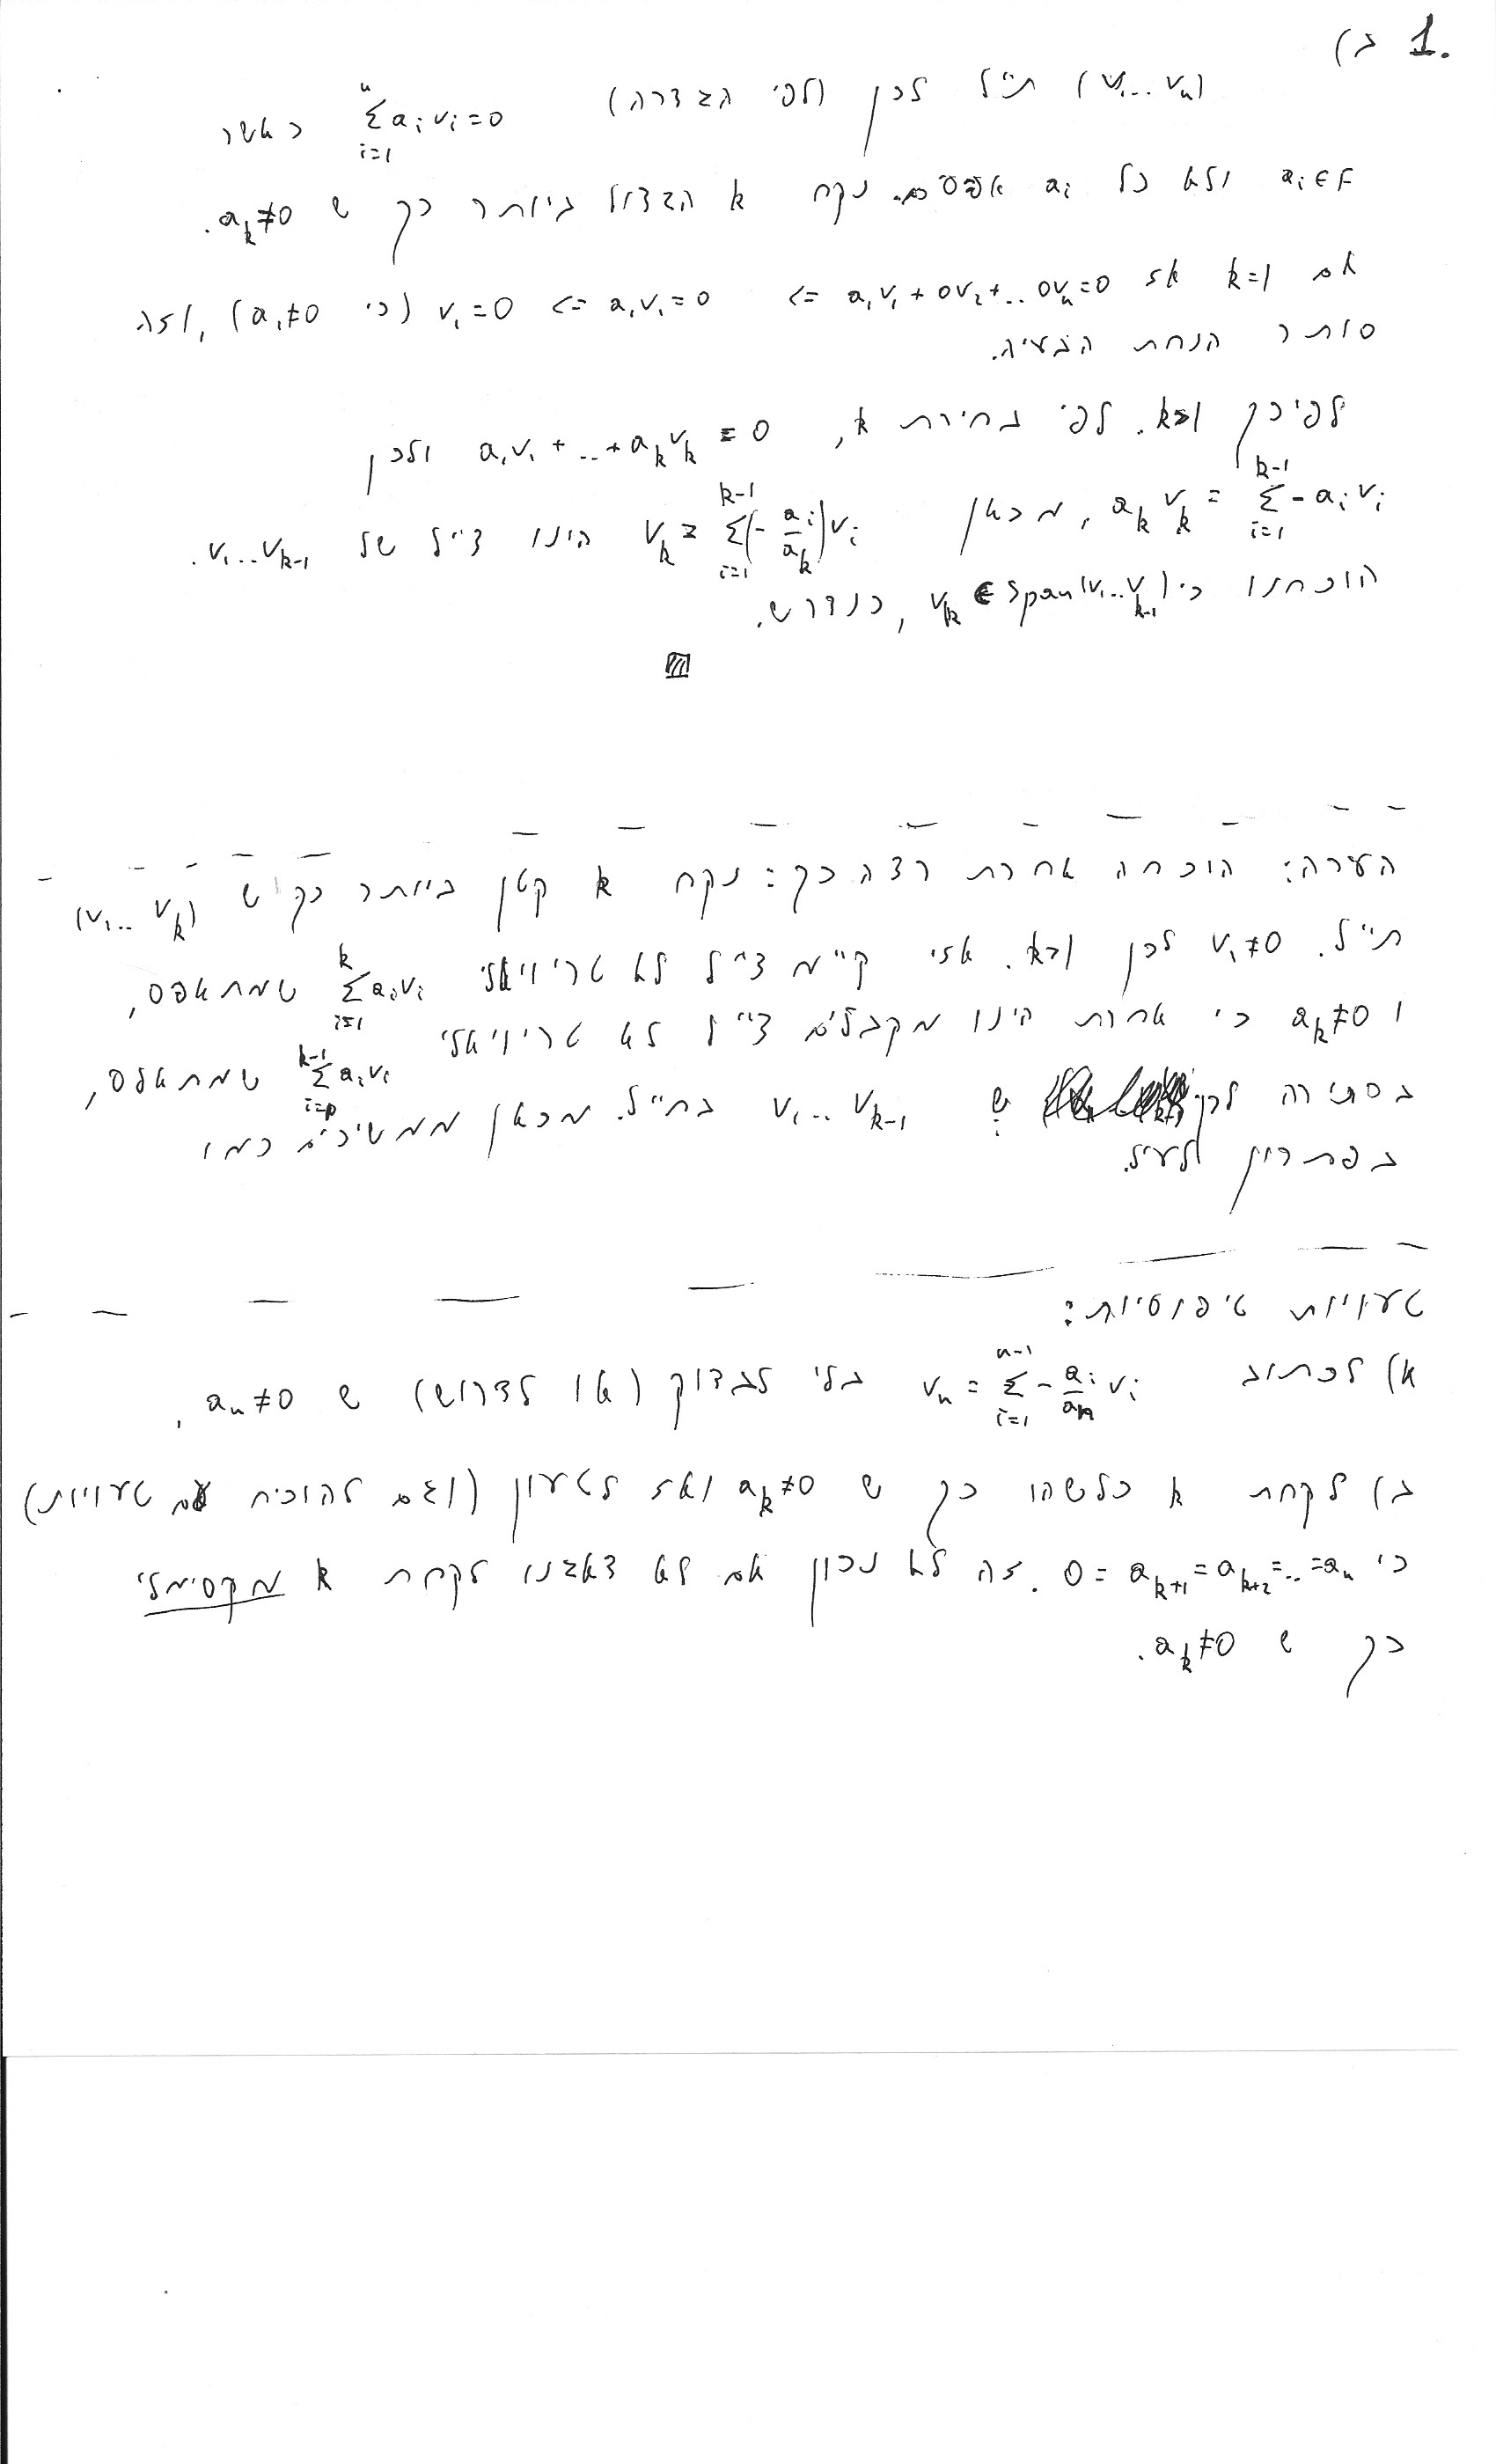 1. ב)
(v₁...vₙ) ת"ל לכן (לפי הגדרה) \sum_{i=1}^{n} a_i v_i = 0 כאשר
a_i ∈ F ולא כל a_i אפסים. נקח k הגדול ביותר כך ש a_k ≠ 0.
אם k=1 אז a₁v₁ + 0v₂ + .. 0vₙ = 0 <= a₁v₁ = 0 <= v₁ = 0 (כי a₁ ≠ 0), וזה
סותר הנחת הבעיה.
לפיכך k>1. לפי בחירת k, a₁v₁ + .. + a_k v_k = 0 ולכן
a_k v_k = \sum_{i=1}^{k-1} -a_i v_i, מכאן v_k = \sum_{i=1}^{k-1} (-\frac{a_i}{a_k}) v_i הינו צ"ל של v₁..v_{k-1}.
הוכחנו כי v_k ∈ Span(v₁..v_{k-1}), כנדרש.
הערה: הוכחה אחרת רצה כך: נקח k קטן ביותר כך ש (v₁.. v_k)
ת"ל. v₁ ≠ 0 לכן k>1. אזי קיים צ"ל לא טריויאלי \sum_{i=1}^{k} a_i v_i שמתאפס,
ו a_k ≠ 0 כי אחרת היינו מקבלים צ"ל לא טריויאלי \sum_{i=1}^{k-1} a_i v_i שמתאפס,
בסתירה לכך ש v₁.. v_{k-1} בת"ל. מכאן ממשיכים כמו
בפתרון לעיל.
טעויות טיפוסיות:
א) לכתוב v_n = \sum_{i=1}^{n-1} -\frac{a_i}{a_n} v_i בלי לבדוק (או לדרוש) ש a_n ≠ 0,
ב) לקחת k כלשהו כך ש a_k ≠ 0 ואז לטעון (וגם להוכיח עם טעויות)
כי 0 = a_{k+1} = a_{k+2} = .. = a_n. זה לא נכון אם לא דאגנו לקחת k מקסימלי
כך ש a_k ≠ 0.